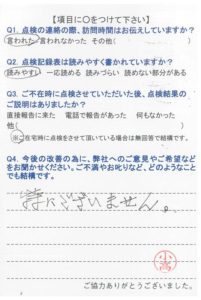 【項目に○をつけて下さい】
Q1. 点検の連絡の際、訪問時間はお伝えしていますか？
言われた 言われなかった その他( )
Q2. 点検記録表は読みやすく書かれていますか？
読みやすい 一応読める 読みづらい 読めない部分がある
Q3. ご不在時に点検させていただいた後、点検結果の
ご説明はありましたか？
直接報告に来た 電話で報告があった 何もなかった
他( )
※ご在宅時に点検をさせて頂いている場合は無回答で結構です。
Q4. 今後の改善の為に、弊社へのご意見やご希望など
をお聞かせください。ご不満やお叱りなど、どのようなこと
でも結構です。
特にございません。
ご協力ありがとうございました。